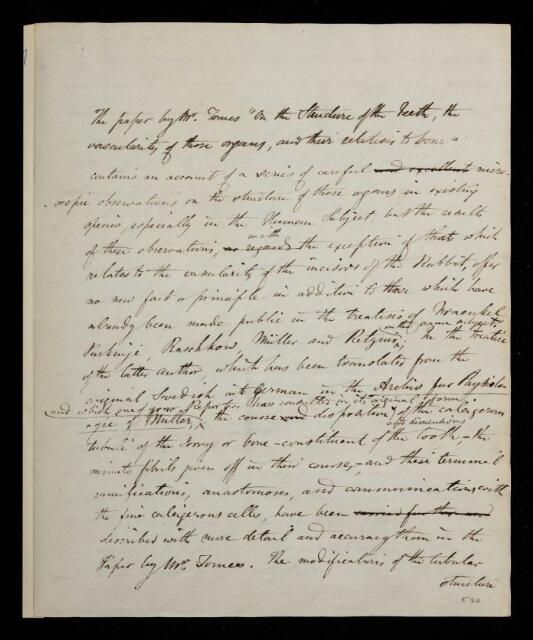 The paper by Mr. Tomes "On the Structure of the Teeth, the
vascularity of those organs, and their relation to bone"
contains an account of a series of careful and excellent micro-
scopic observations on the structure of those organs in existing
species, especially in the Human Subject, but the results
with
of these observations, regards the exception of that which
relates to the vascularity of the incisors of the Rabbit, offer
no new fact or principle in addition to those which have
already been made public in the treatises of Fraenkel
on the same subject.
Purkinje, Raschkow, Müller and Retzius, In the treatise
of the latter author which has been translated from the
original Swedish into German in the Archiv fur Physiolo-
and which one of your Paper for has consulted in its original form
ogie of Müller, the course and disposition of the calcigerous
and dimensions
tubuli of the Ivory or bone-constituent of the tooth, – the
minute fibrils given off in their course, – and their terminal
ramifications, anastomoses, and communications with
the fine calcigerous cells, have been carried further and
described with more detail and accuracy than in the
Paper by Mr. Tomes. The modifications of the tubular
structure